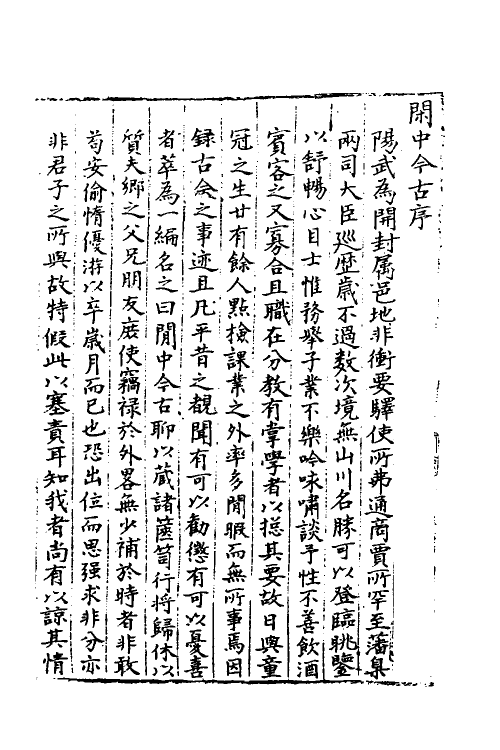 閑中今古序
陽武為開封属邑地非衝要驛使所弗通商賈所罕至藩臬
兩司大臣廵歴歲不過数次境無山川名勝可以登臨眺鑒
以舒暢心目士惟務舉子業不樂吟咏嘯談予性不善飲酒
賓客之又寡合且職在分教有掌學者以揔其要故日與童
冠之生廿有餘人點撿課業之外率多閒暇而無所事焉因
録古今之事迹且凡平昔之覩聞有可以勸懲有可以憂喜
者萃為一編名之曰閒中今古聊以蔵諸篋笥行将歸休以
質夫鄉之父兄朋友庶使竊禄於外畧無少補於時者非敢
苟安偷惰優游以卒歲月而已也恐出位而思强求非分亦
非君子之所與故特假此以塞責耳知我者尚有以諒其情